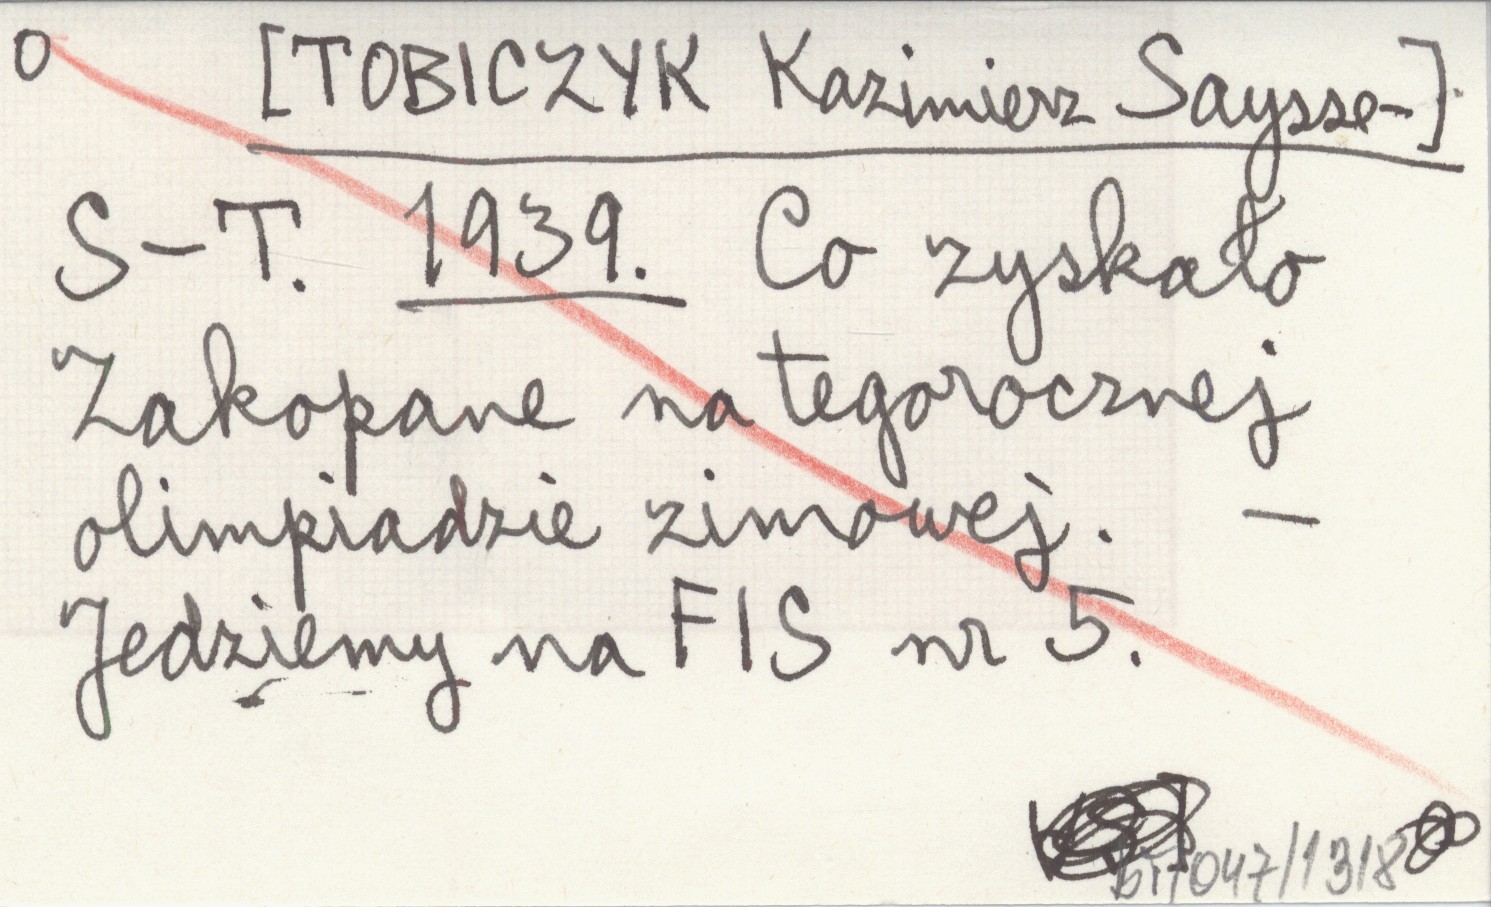 o [TOBICZYK Kazimierz Saysse-]
S-T. 1939. Co zyskało
Zakopane na tegorocznej
olimpiadzie zimowej. —
Jedziemy na FIS nr 5.
/047/1318